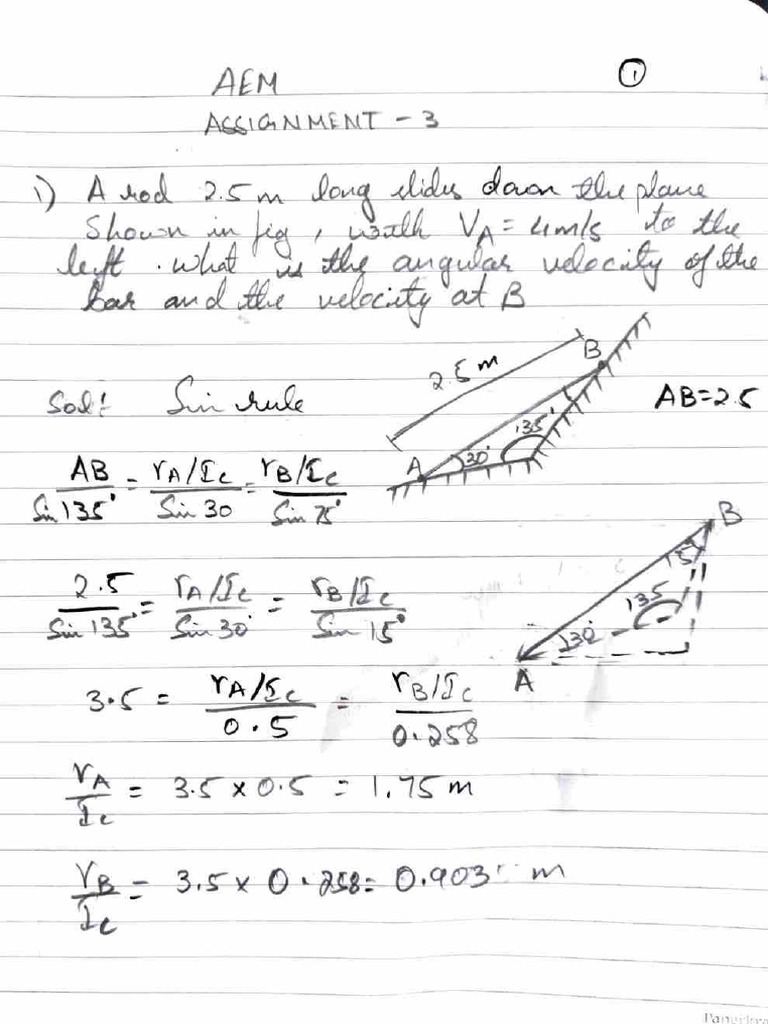 ①
AEM
ASSIGNMENT - 3
1) A rod 2.5 m long slides down the plane
Shown in fig, with VA = 4m/s to the
left. what is the angular velocity of the
bar and the velocity at B
2.5 m
B
135°
30°
A
AB=2.5
Sol: Sin rule
AB/Sin 135° = rA/Ic/Sin 30 = rB/Ic/Sin 75°
B
15
135
30°
A
2.5/Sin 135° = rA/Ic/Sin 30° = rB/Ic/Sin 15°
3.5 = rA/Ic/0.5 = rB/Ic/0.258
rA/Ic = 3.5 × 0.5 = 1.75 m
rB/Ic = 3.5 × 0.258 = 0.903 m